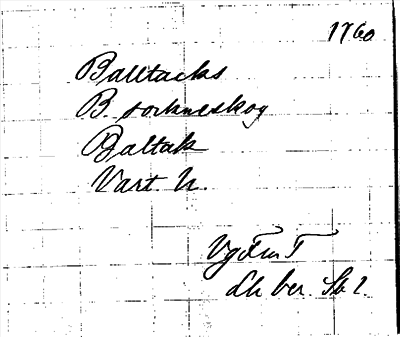 1760
Balltacks
B. sockneskog
Baltak
Vart. h.
Lk ber. Sk 2.